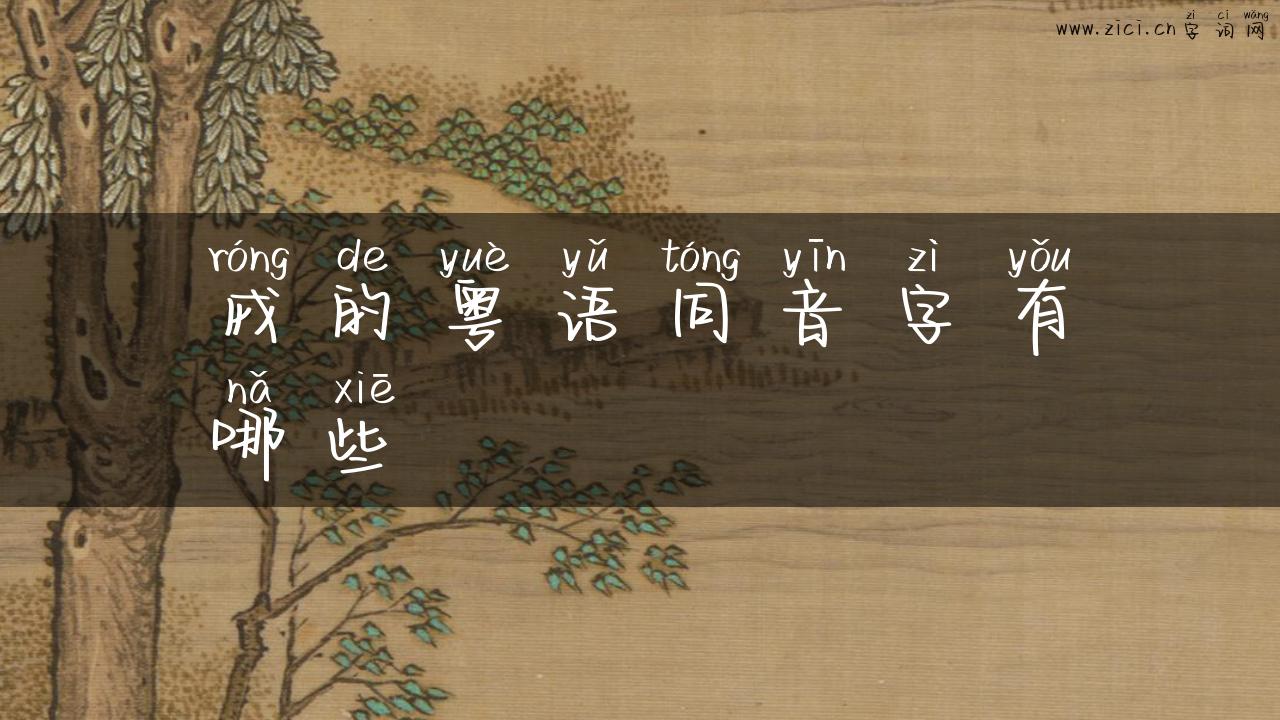 zì cí wǎng
www.zici.cn 字词网
róng de yuè yǔ tóng yīn zì yǒu
戎的粤语同音字有
nǎ xiē
哪些